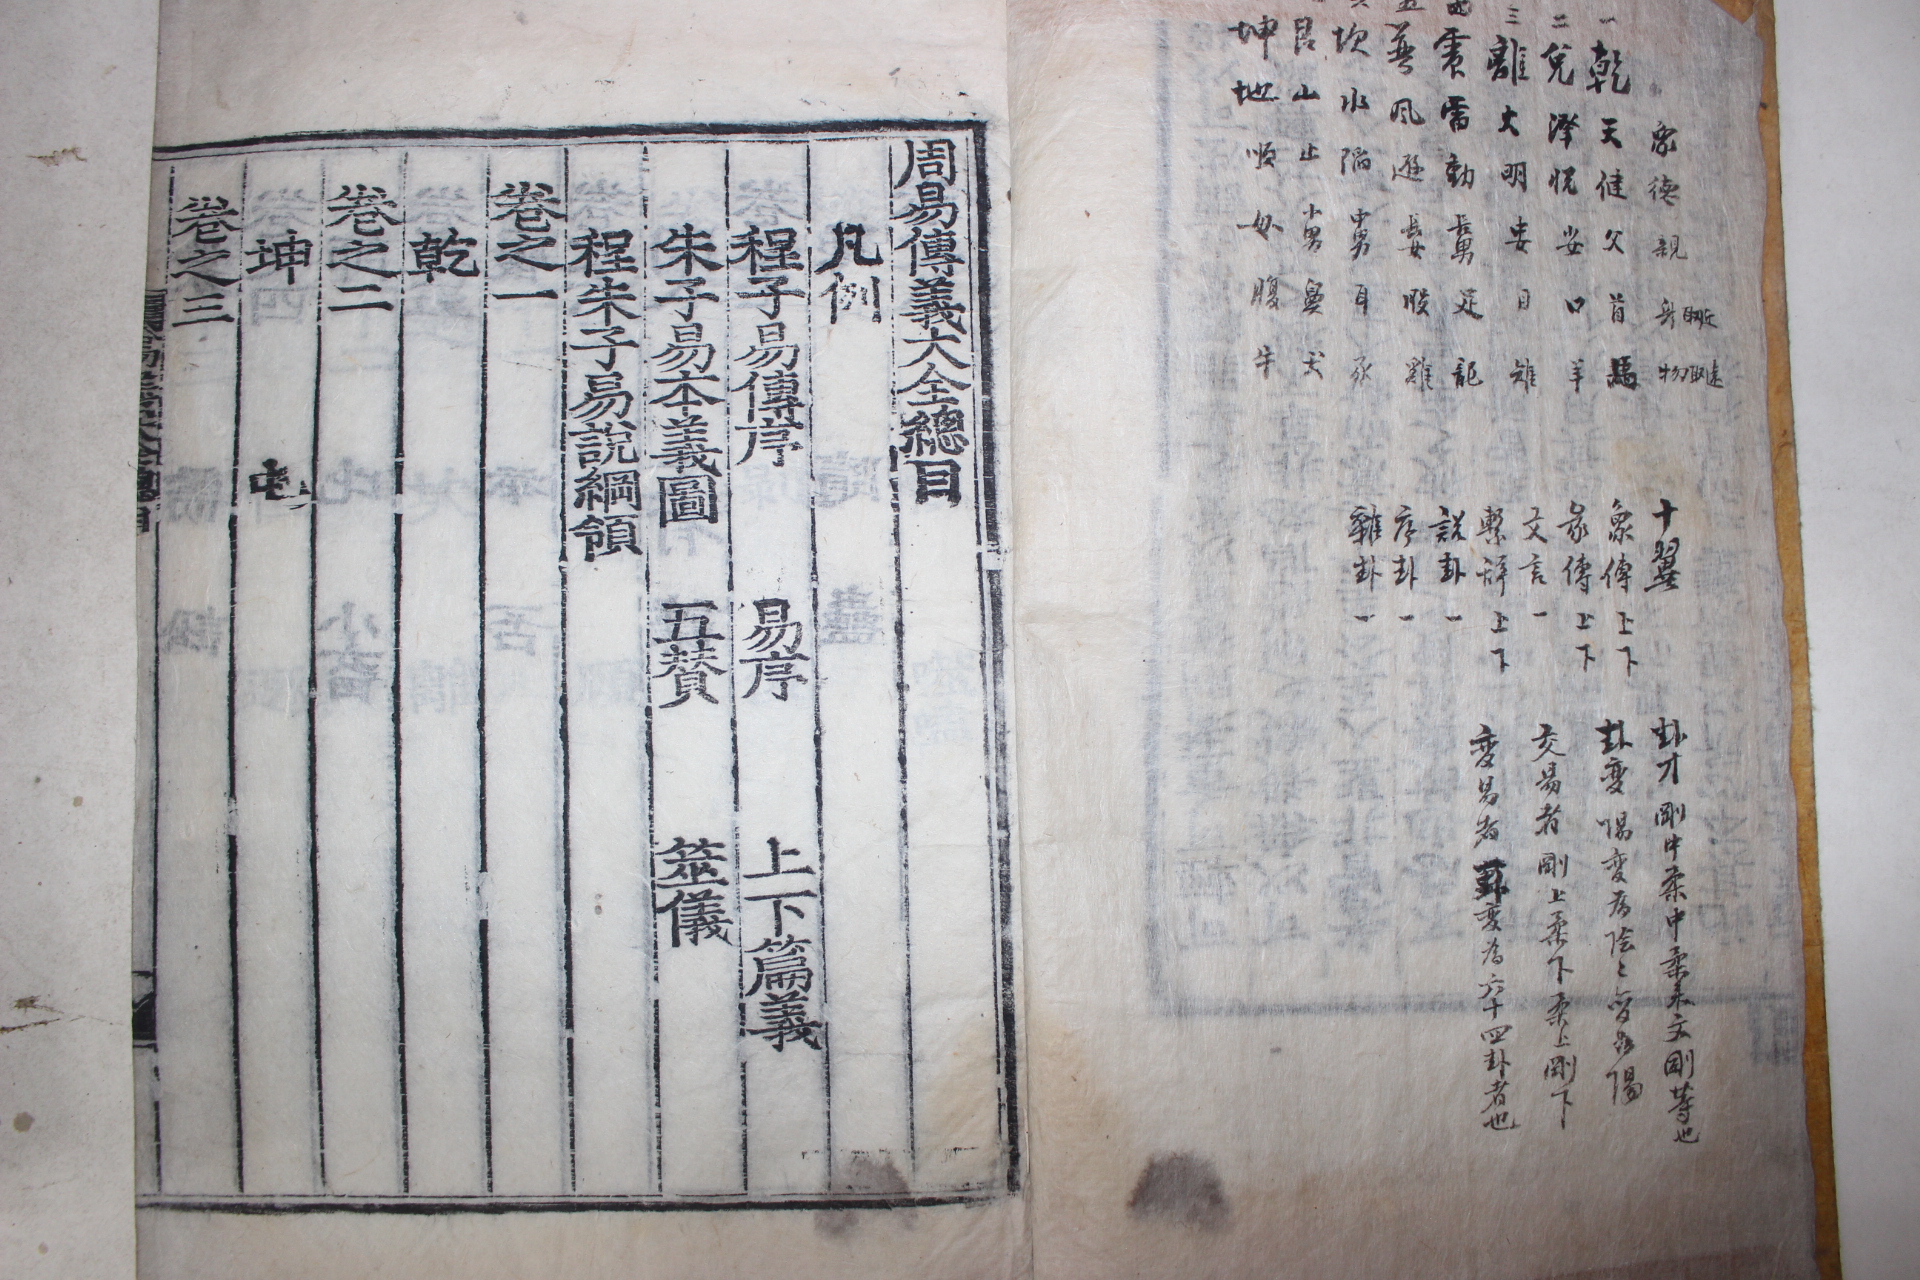 象 德 親 身 近取 物 遠取
一 乾 天 健 父 首 馬
二 兌 澤 悅 少女 口 羊
三 離 火 明 中女 目 雉
四 震 雷 動 長男 足 龍
五 巽 風 遜 長女 股 雞
坎 水 陷 中男 耳 豕
艮 山 止 小男 鼻 犬
坤 地 順 母 腹 牛
十翼
彖傳 上下
象傳 上下
文言 一
繫辭 上下
說卦 一
序卦 一
雜卦 一
卦才 剛中柔中柔文剛等也
卦變 陽變爲陰陰變爲陽
交易者 剛上柔下柔上剛下
變易者 卦變爲六十四卦者也
周易傳義大全總目
凡例
程子易傳序 易序 上下篇義
朱子易本義圖 五贊 筮儀
程朱子易說綱領
卷之一
乾
卷之二
坤 屯
卷之三